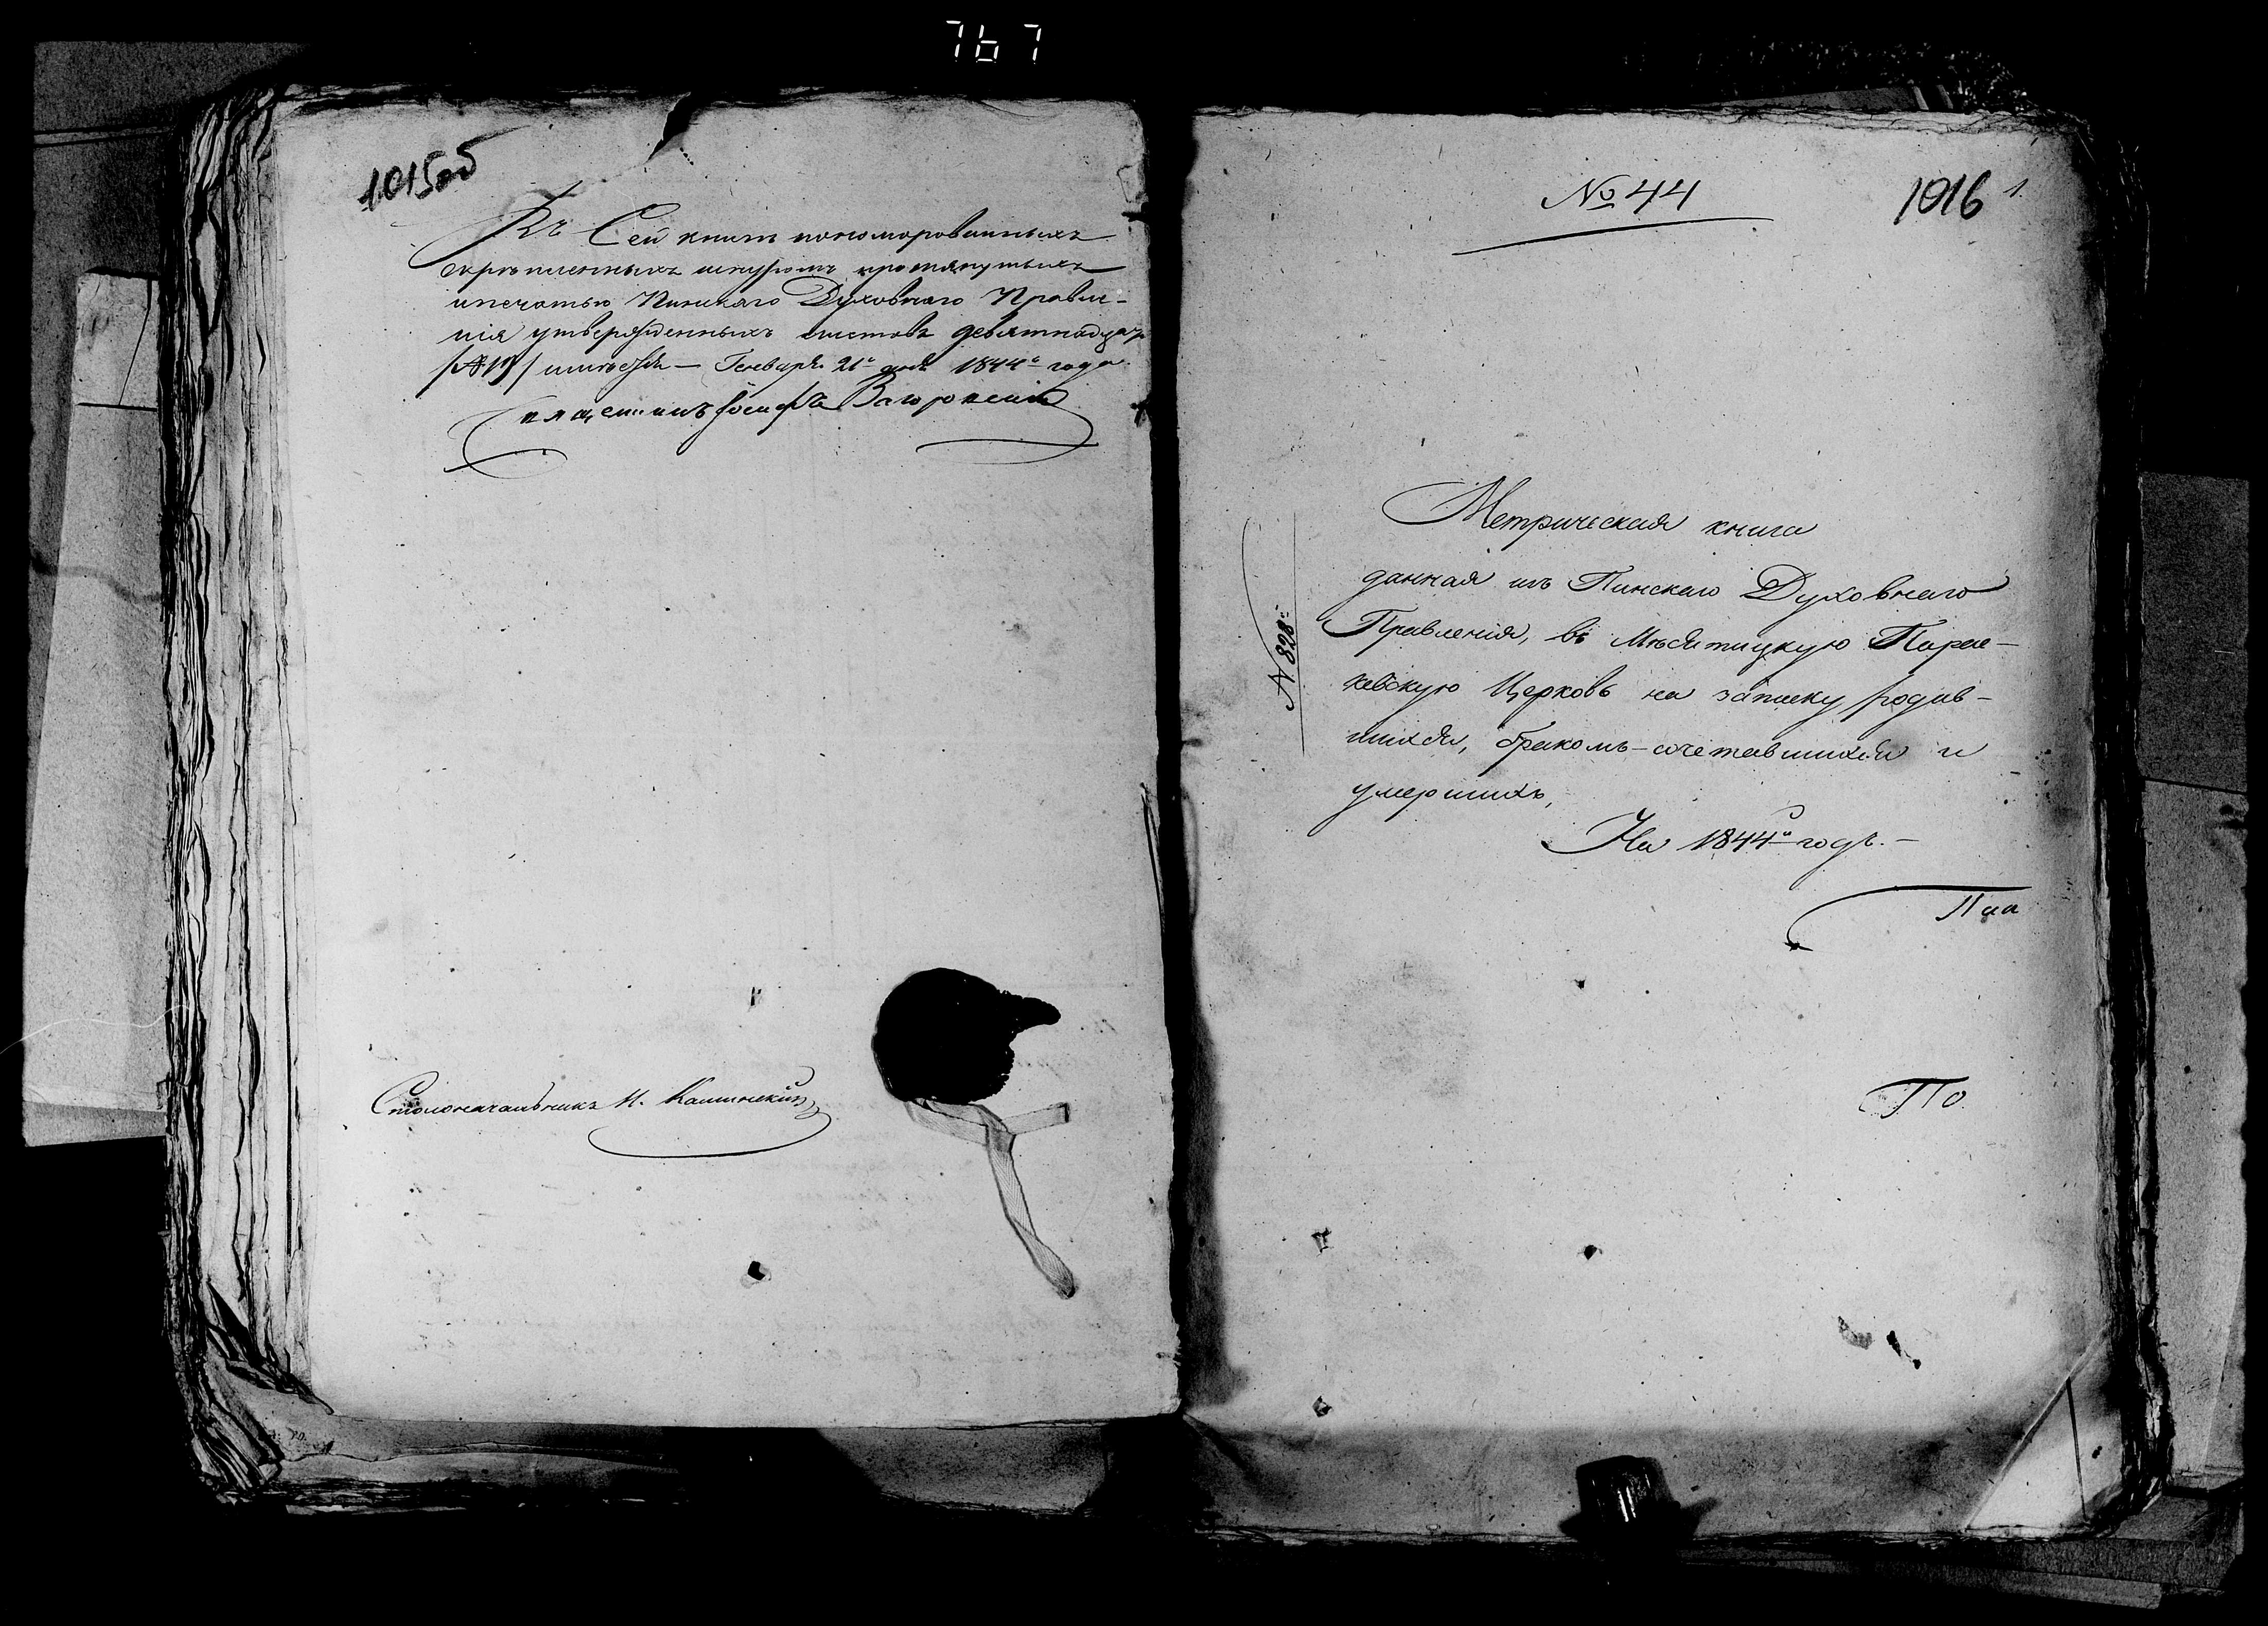 767
1015об
Въ Сей книгѣ пономерованныхъ
скрѣпленныхъ шнуромъ протянутыхъ
ипечатью Пинскаго Духовнаго Правле-
нія утвержденныхъ листовъ девятнадцать
/№19/ имѣется — Генваря 21го дня 1844го года.
Священникъ Іосифъ
Столоначальникъ И. Калинскій
№ 44
1016
1.
Метрическая книга
данная изъ Пинскаго Духовнаго
Правленія, въ Мѣсятицкую Парас-
кевскую Церковь на записку родив-
шихся, бракомъ-сочетавшихся и
умершихъ,
На 1844й годъ. —
N 828.
По